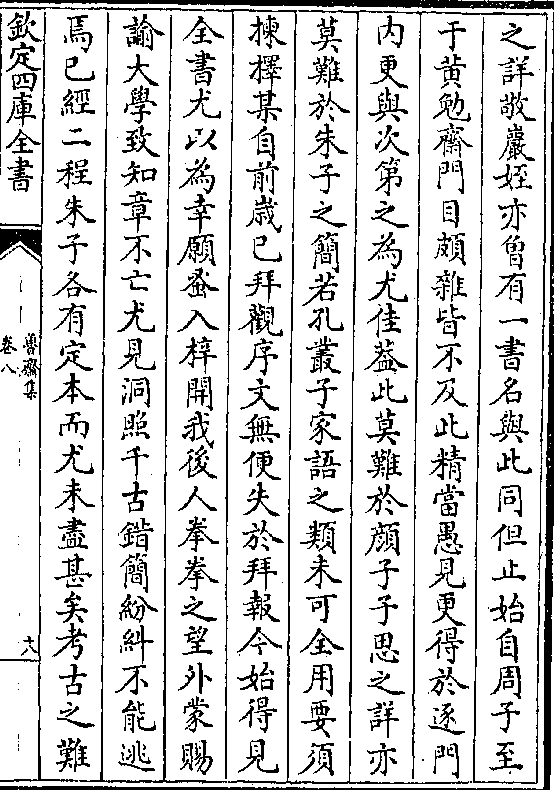 之詳敬巖姪亦曾有一書名與此同但止始自周子至
于黄勉齋門目頗雜皆不及此精當愚見更得於逐門
内更與次第之為尤佳葢此莫難於顔子子思之詳亦
莫難於朱子之簡若孔叢子家語之類未可全用要須
揀擇某自前歲已拜觀序文無便失於拜報今始得見
全書尤以為幸願蚤入梓開我後人拳拳之望外蒙賜
諭大學致知章不亡尤見洞照千古錯簡紛糾不能逃
焉已經二程朱子各有定本而尤未盡甚矣考古之難
欽定四庫全書
魯齋集
卷八
十八